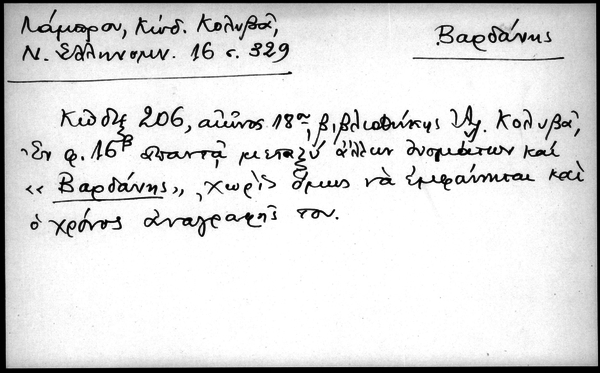 Λάμπρου, Κώδ. Κολυβᾶ,
Ν. Ἑλληνομν. 16 σ. 329
Βαρδάνης
Κώδιξ 206, αἰῶνος 18ης, βιβλιοθήκης Ἀλ. Κολυβᾶ,
Ἐν φ. 16β ἀπαντᾷ μεταξὺ ἄλλων ὀνομάτων καὶ
«Βαρδάνης», χωρὶς ὅμως νὰ ἐμφαίνηται καὶ
ὁ χρόνος ἀναγραφῆς του.